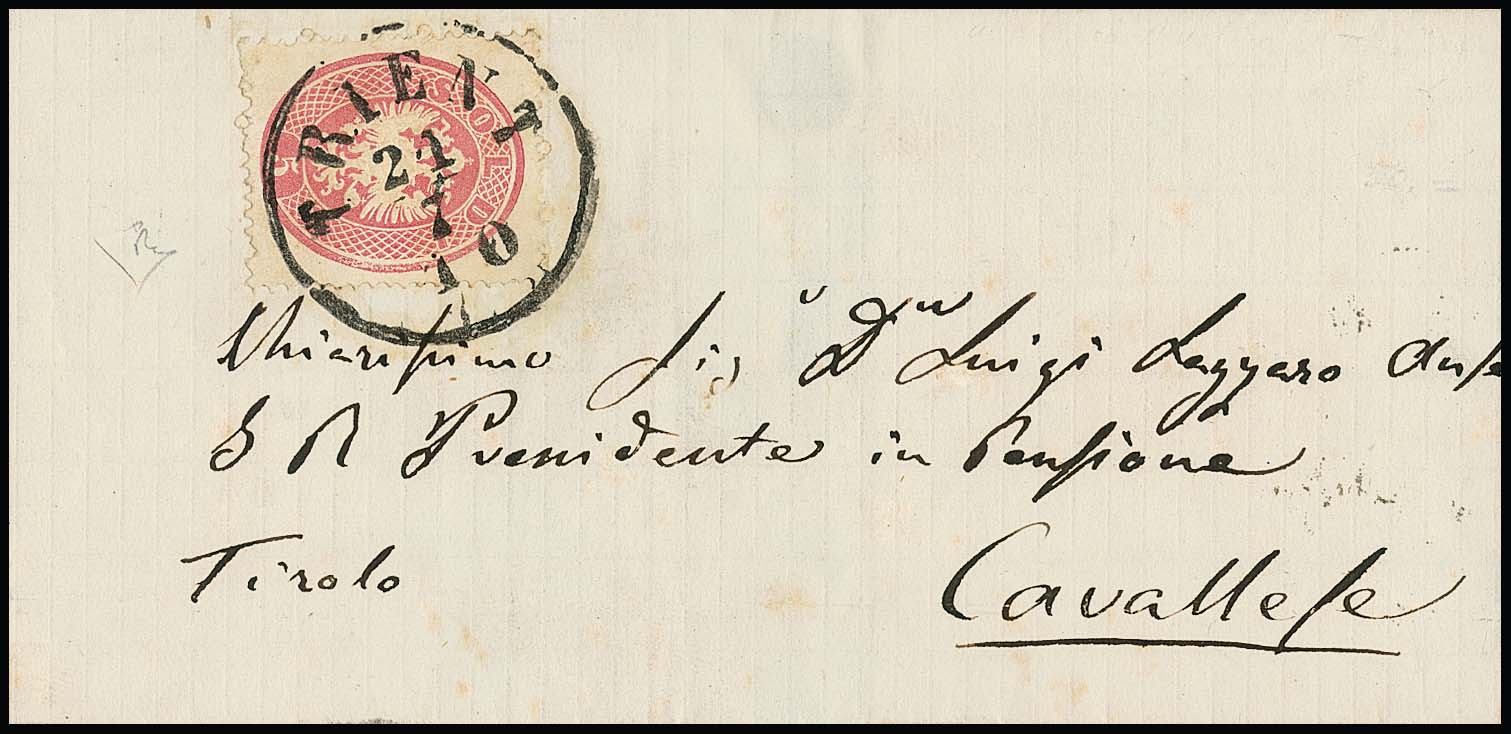 5 SOLDI
TRIENT
21
7
10
Chiarissimo Sig Dn Luigi Lazzaro
I R Presidente in Pensione
Tirolo
Cavallese